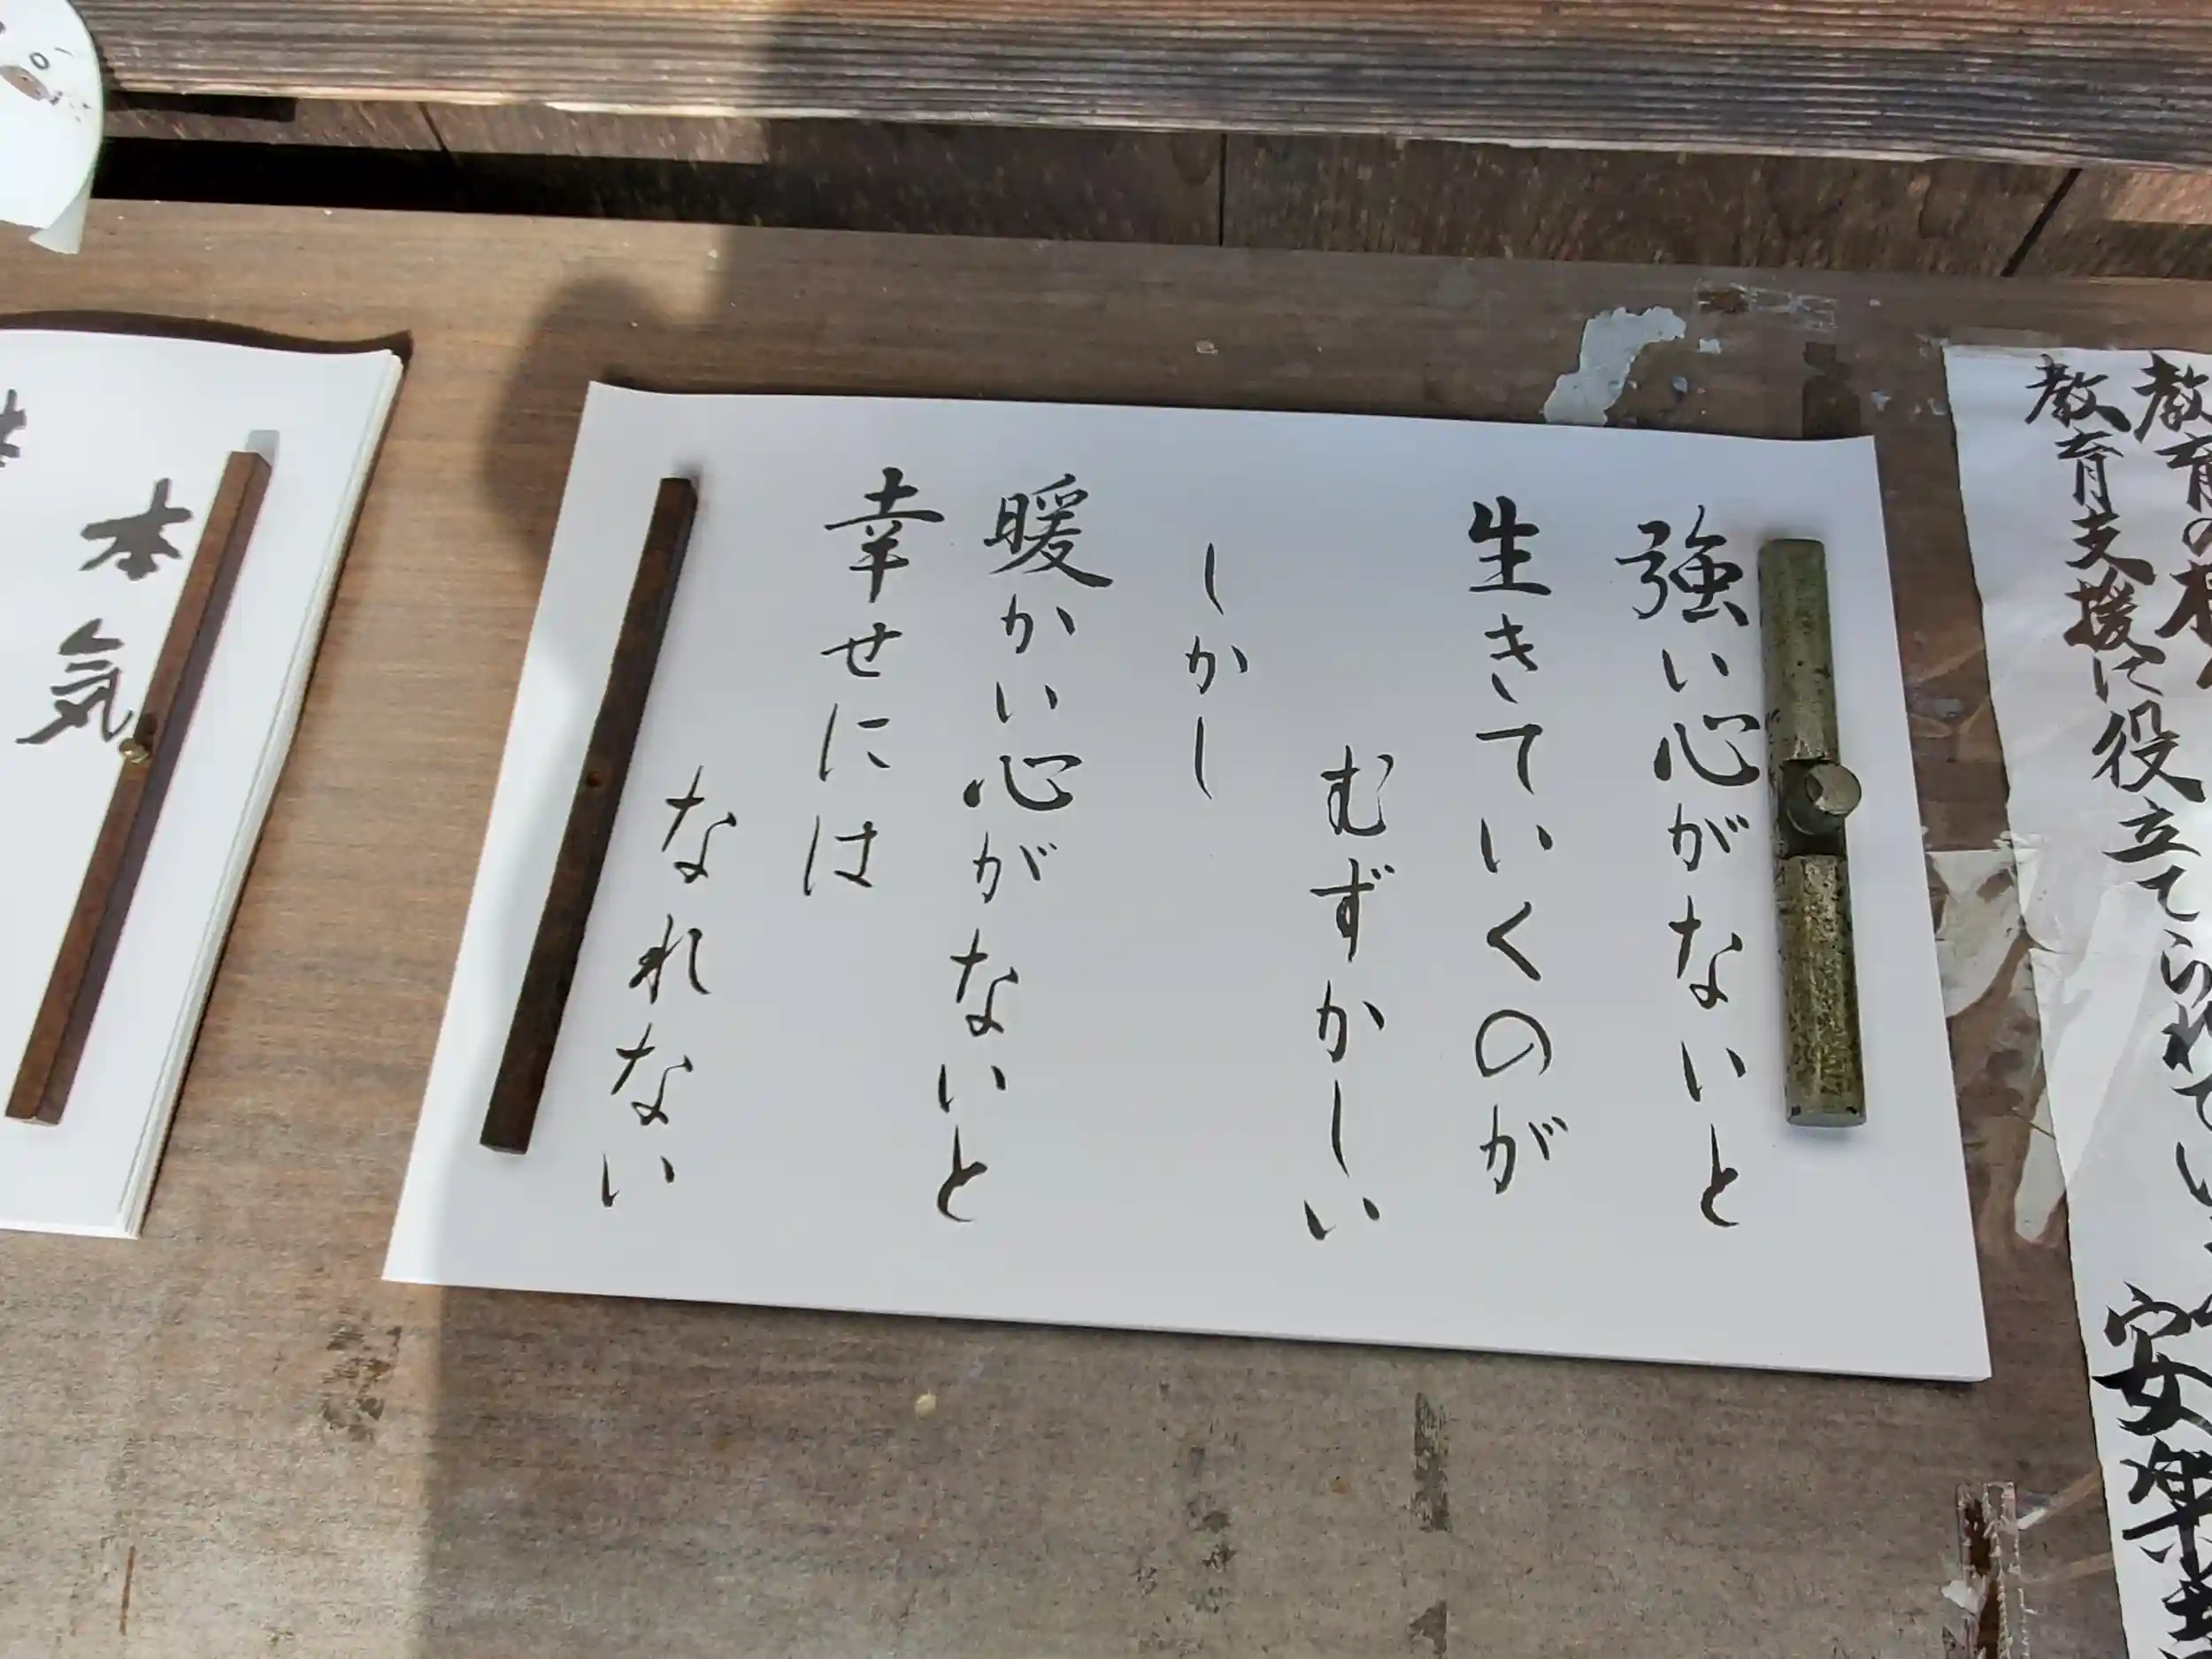 教育支援に役立てられてい
安楽
強い心がないと
生きていくのが
むずかしい
しかし
暖かい心がないと
幸せには
なれない
本気